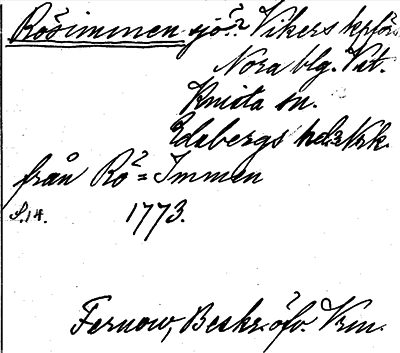 Rösimmen sjö? Vikers kpför.
Nora blg. Vst.
Knista sn.
Edsbergs hd. Nrk.
från Rö=Immen
S.14. 1773.
Fernow, Beskr. öfv. Vrm.